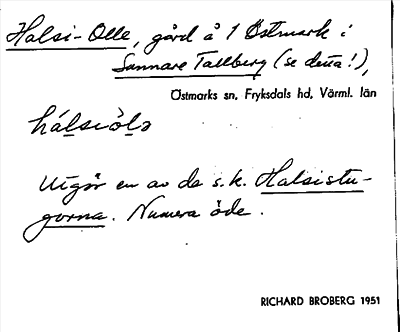 Halsi-Olle, gård å 1 Östmark i
Sannare Tallberg (se detta!),
Östmarks sn, Fryksdals hd, Värml. län
hálsiòlə
Utgör en av de s.k. Halsistu-
gorna. Numera öde.
RICHARD BROBERG 1951